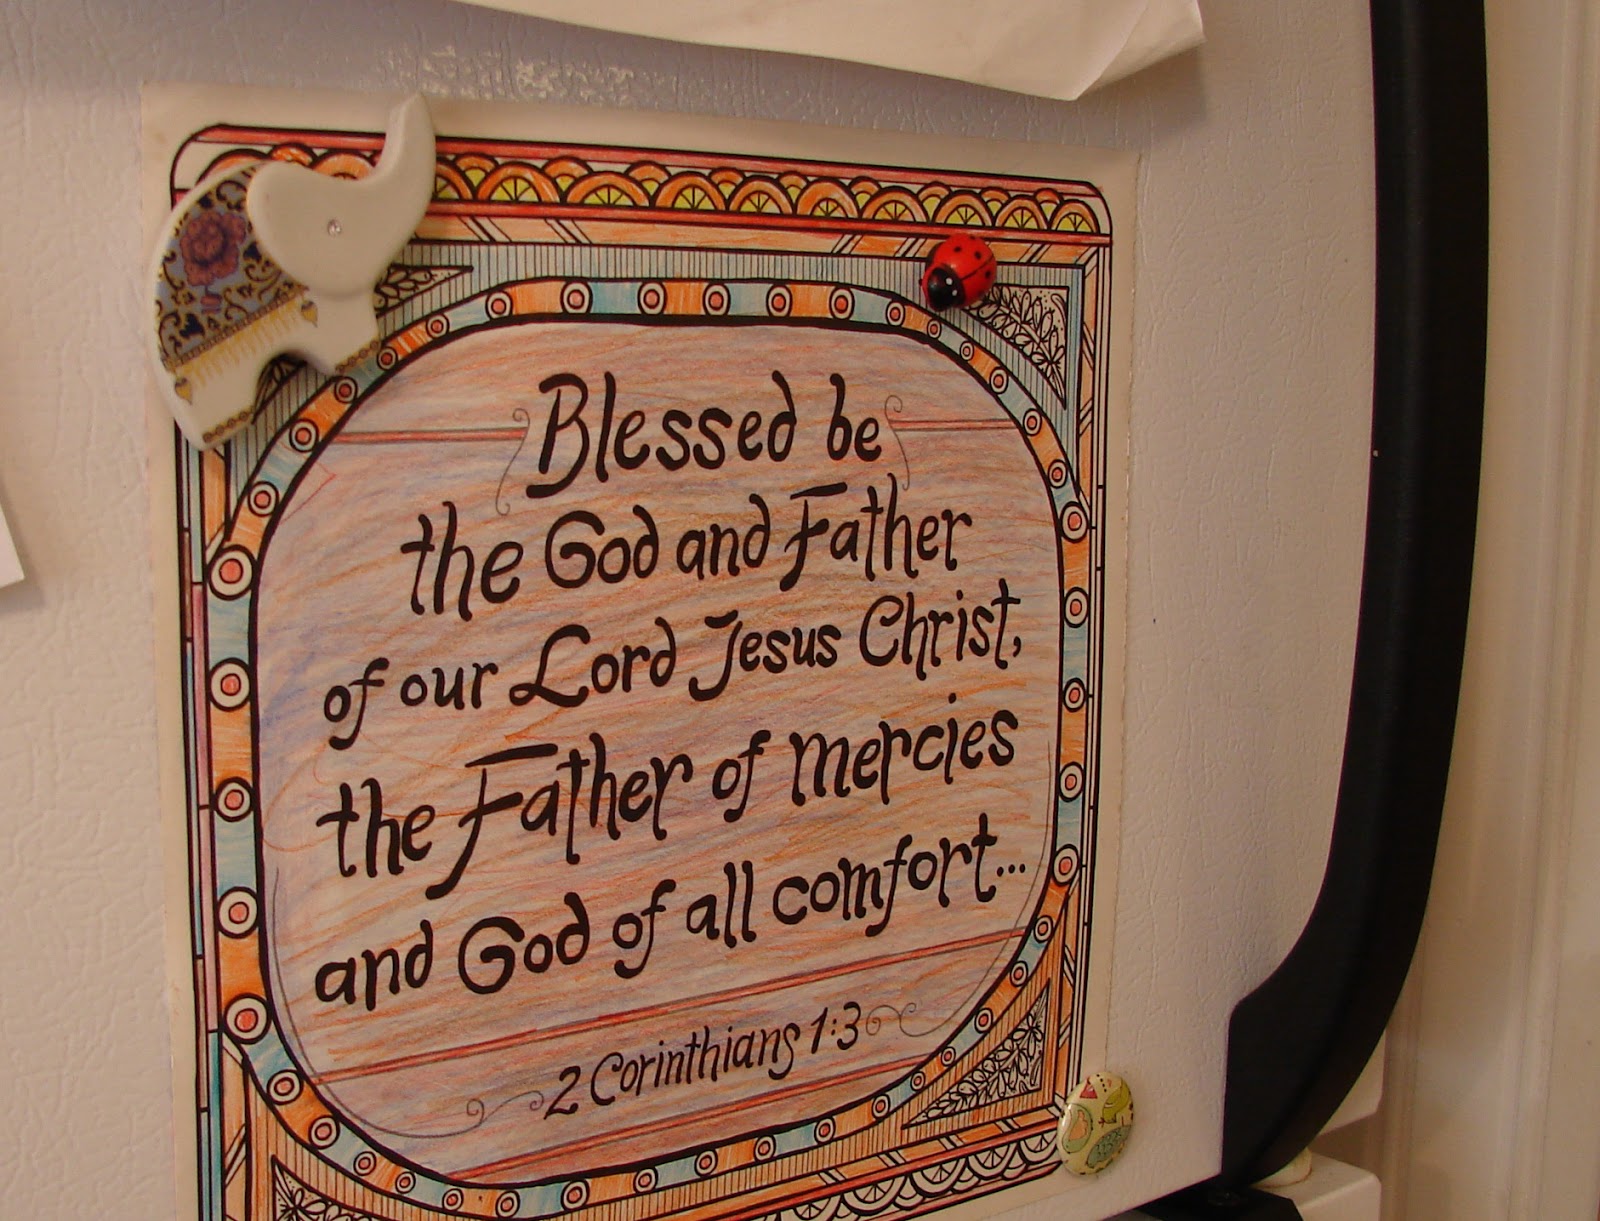 Blessed be
the God and Father
of our Lord Jesus Christ,
the Father of mercies
and God of all comfort...
2 Corinthians 1:3